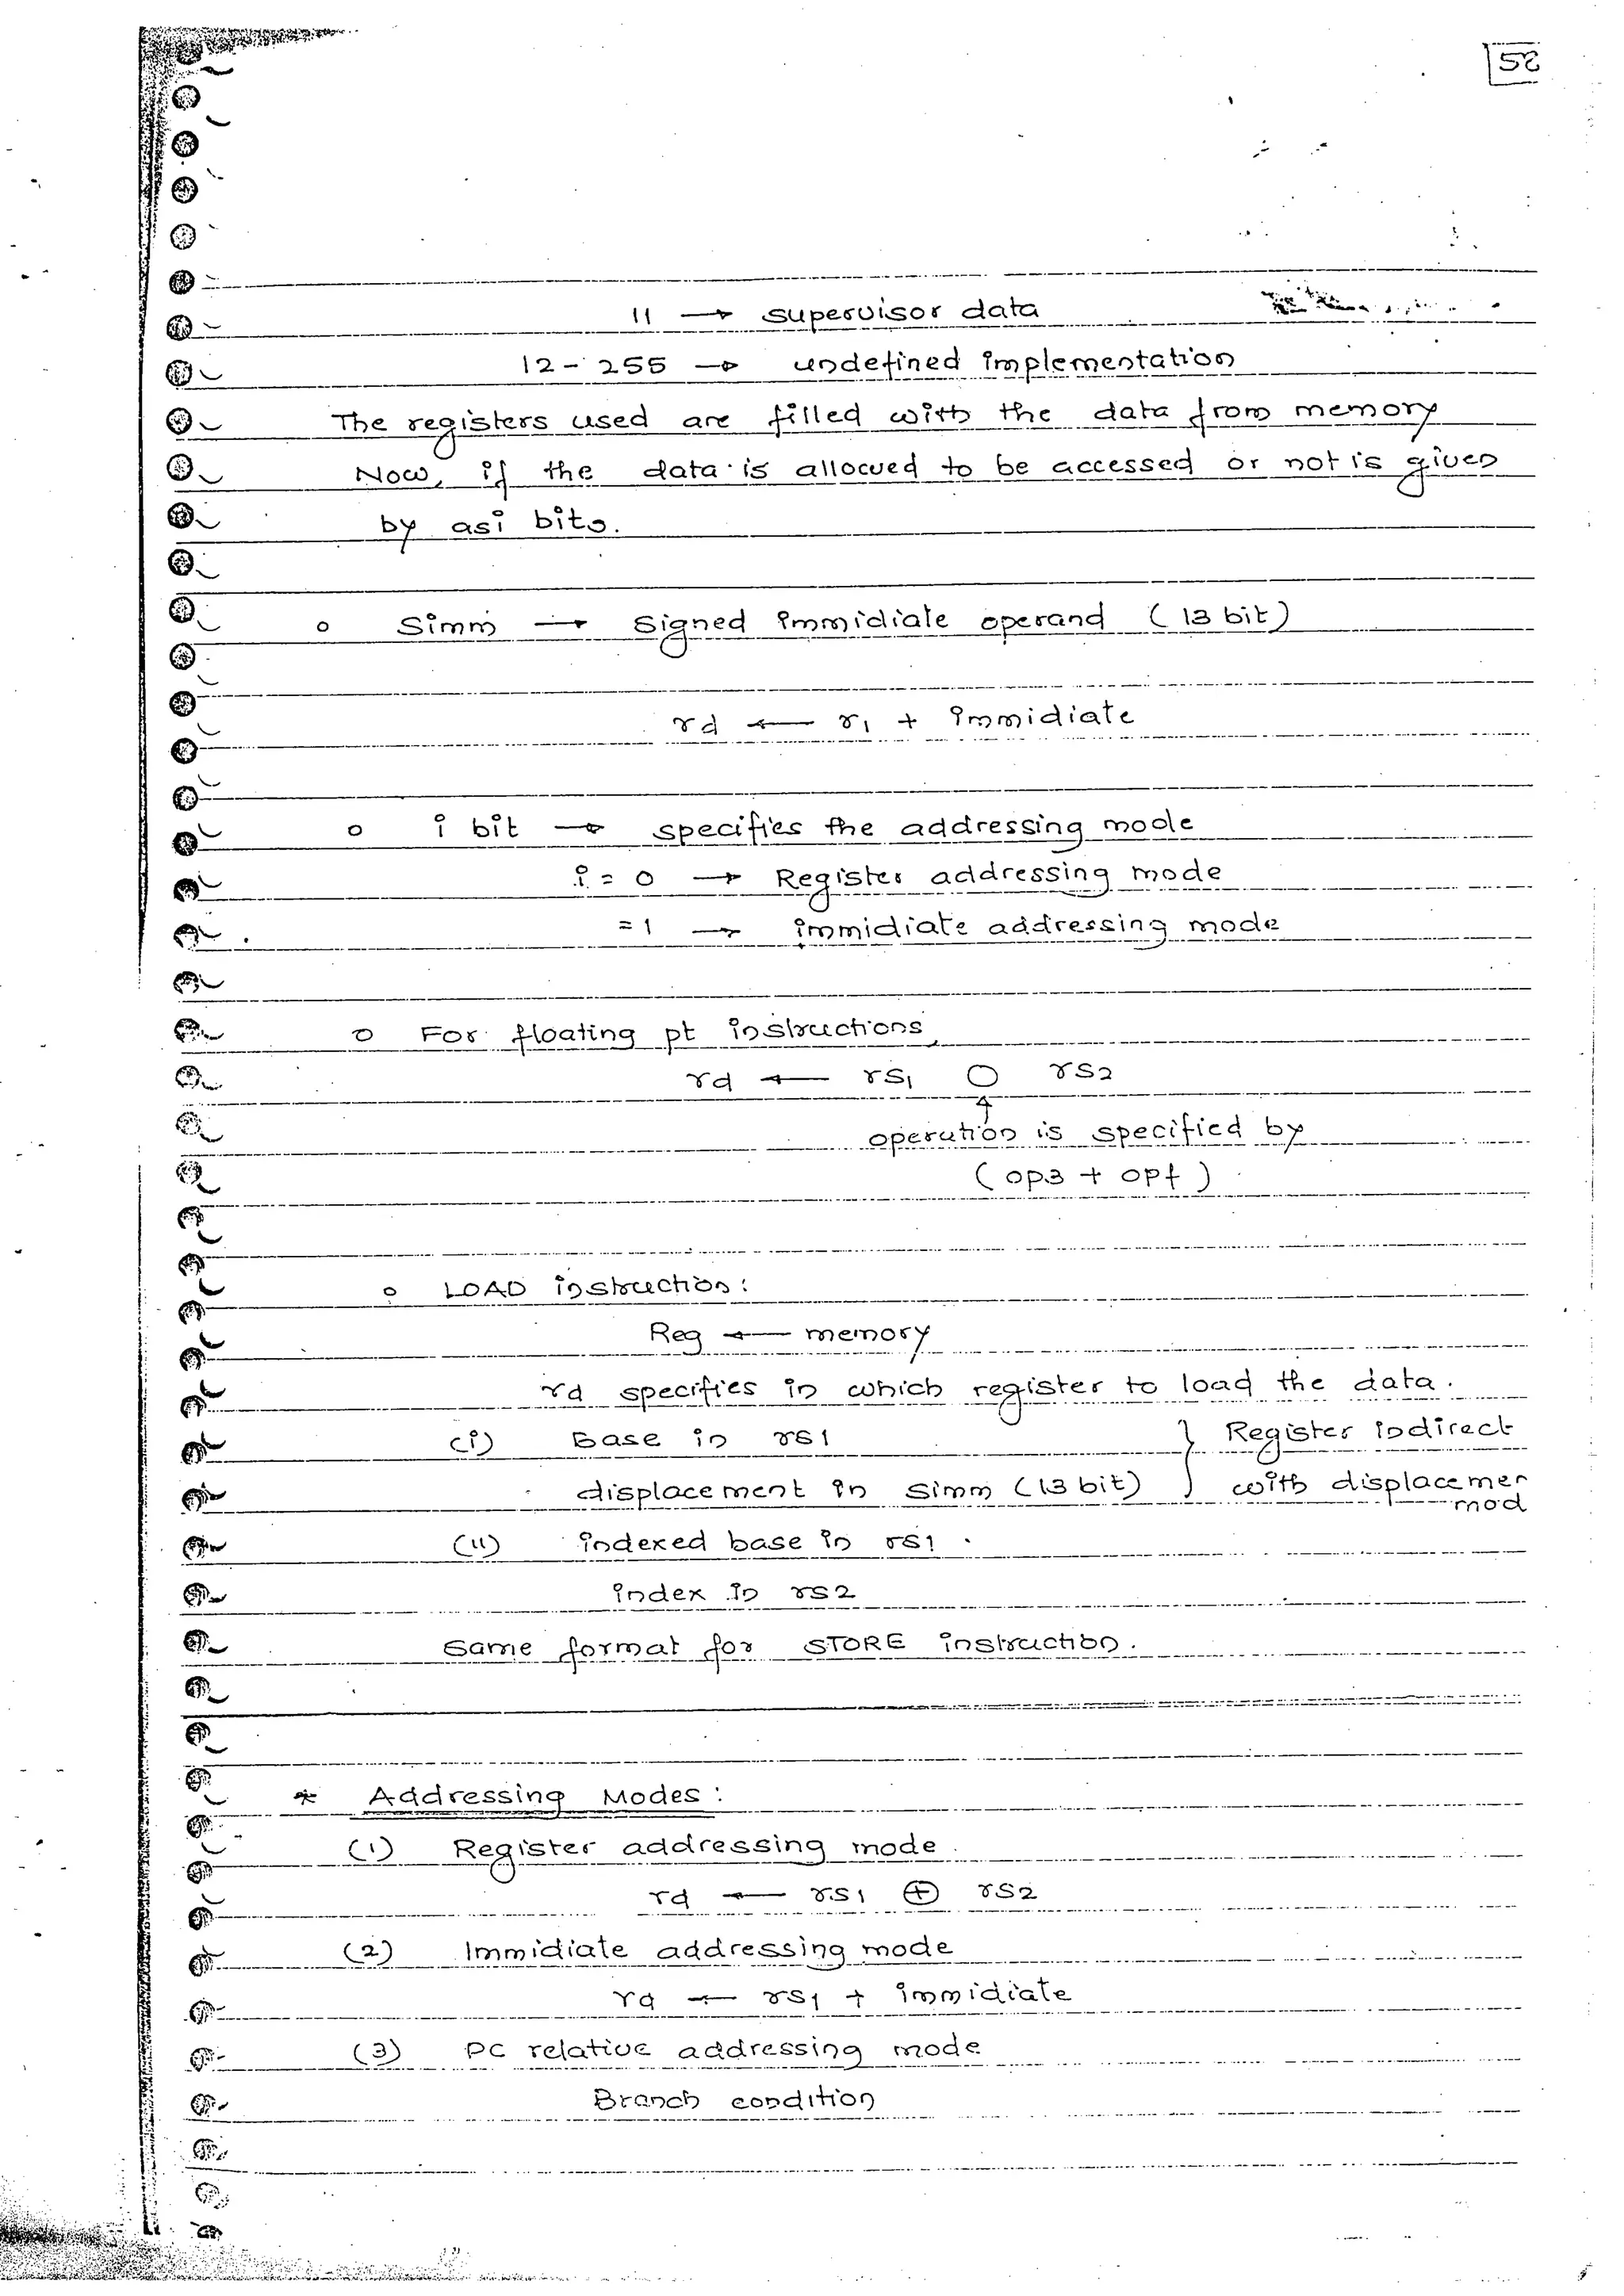 52
11 → supervisor data
12 - 255 → undefined implementation
The registers used are filled with the data from memory
Now, if the data is allowed to be accessed or not is given
by asi bits.
o Simm → Signed immidiate operand (13 bit)
rd ← r1 + immidiate
o i bit → specifies the addressing mode
i = 0 → Register addressing mode
= 1 → immidiate addressing mode
o For floating pt instructions,
rd ← rS1 ○ rS2
operation is specified by
(op3 + opf)
o LOAD instruction:
Reg ← memory
rd specifies in which register to load the data.
(i) Base in rS1 } Register indirect
displacement in simm (13 bit) } with displacemen
mod
(ii) indexed base in rS1
index in rS2
Same format for STORE instruction.
* Addressing Modes:
(1) Register addressing mode
rd ← rS1 ⊕ rS2
(2) Immidiate addressing mode
rd ← rS1 + immidiate
(3) PC relative addressing mode
Branch condition